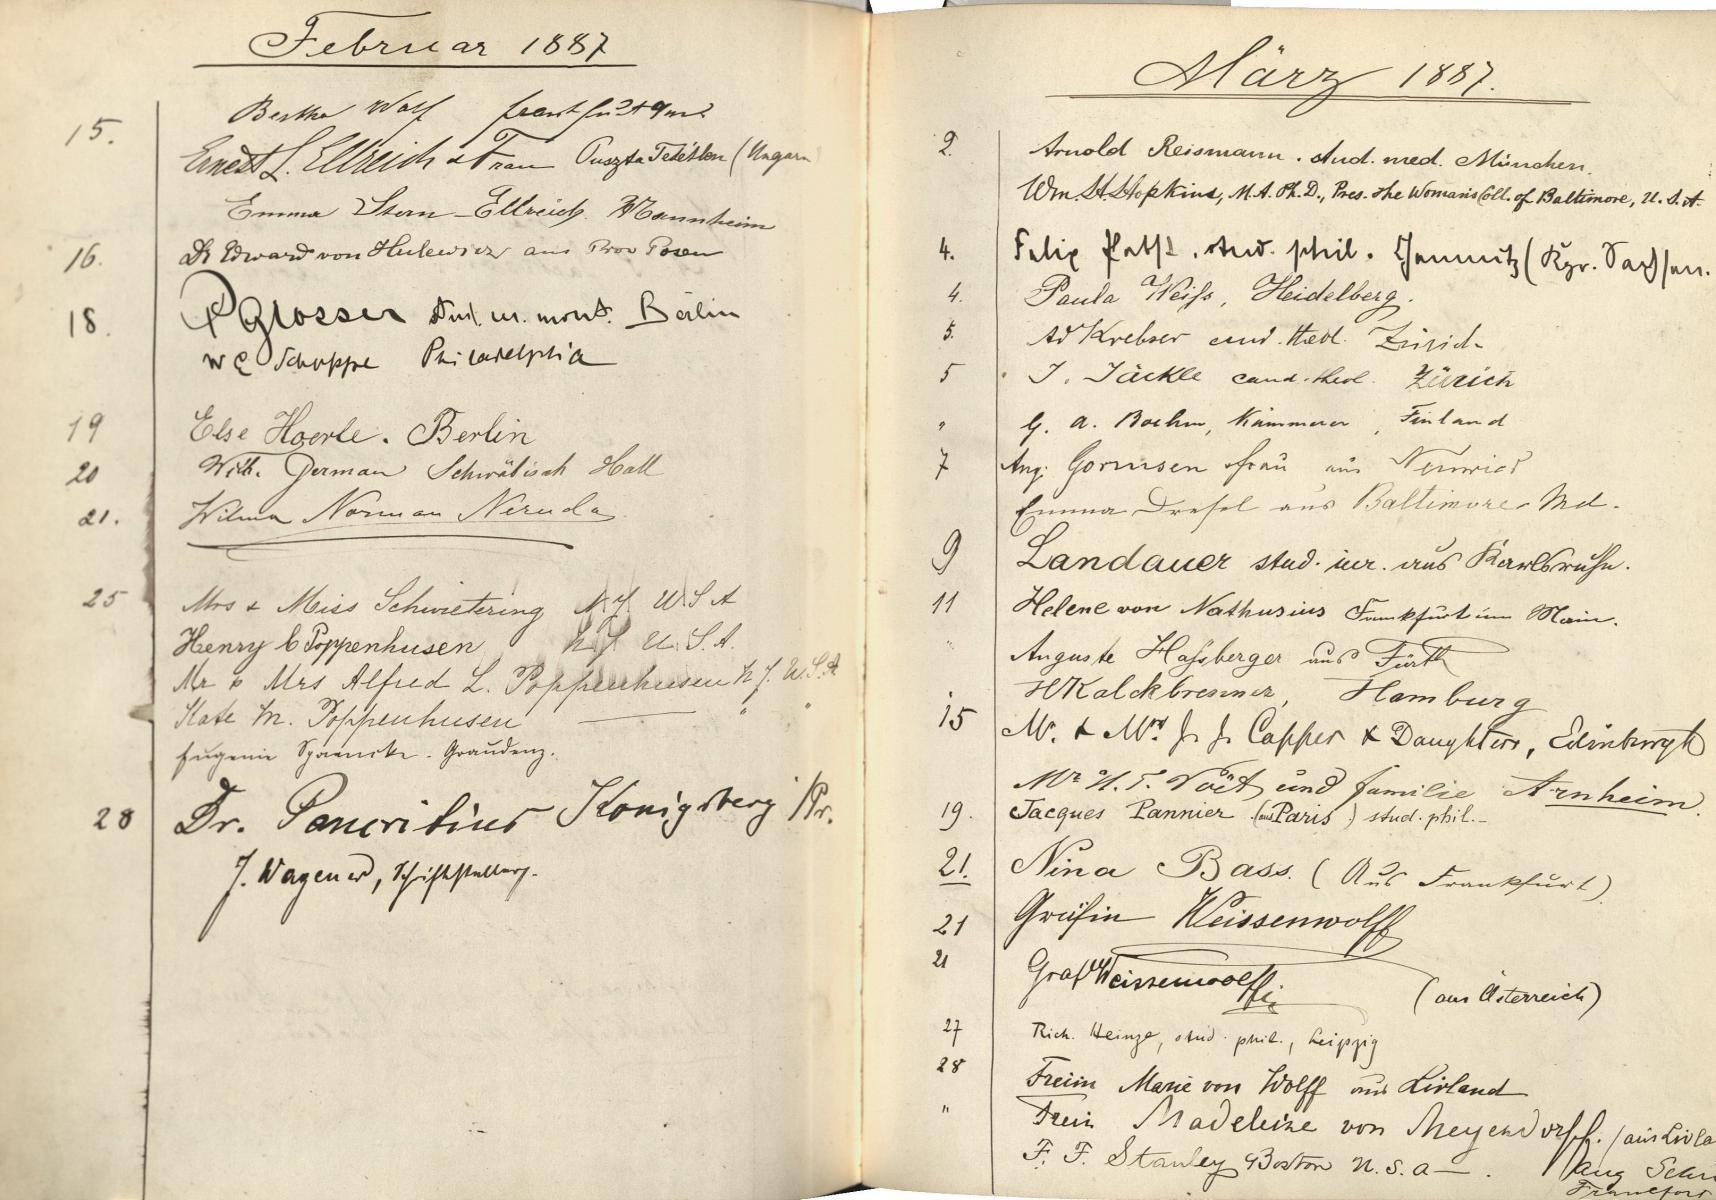 Februar 1887
15. Bertha Wolf Frankfurt a/m
Ernest L. Ellreich & Frau Puszta Tetétlen (Ungarn
Emma Stern-Ellreich Mannheim
16. Dr Edward von Hulewicz aus Prov Posen
18. Glosser Berlin
W E Schoppe Philadelphia
19 Else Hoerle. Berlin
20 Wilh. German Schwäbisch Hall
21. Wilma Norman Neruda
25 Mrs & Miss Schwietering N Y U S A
Henry C Poppenhusen N Y U. S. A.
Mr & Mrs Alfred L. Poppenhusen N Y. U. S. A
Kate M. Poppenhusen — " "
Eugenie Graudenz.
28 Dr. Pancritius Königsberg i/Pr.
J. Wagener, Schriftstellerg.
März 1887.
2. Arnold Reismann. stud. med. München.
Wm. H. Hopkins, M.A. Ph.D., Pres. the Woman's Coll. of Baltimore, U.S.A.
4. Felix Pabst. stud. phil. Chemnitz (Kgr. Sachsen.
4. Paula Weiß, Heidelberg.
5. Ad Krebser cand. theol. Zürich
5 J. Jäckle cand. theol. Zürich
" G. A. Boehm, Kammerer, Finland
7 Aug. Gormsen & Frau aus Neuwied
Emma Dresel aus Baltimore Md.
9 Landauer stud. iur. aus Karlsruhe.
11 Helene von Nathusius Frankfurt am Main.
" Auguste Haßberger aus Fürth
H Kalckbrenner, Hamburg
15 Mr. & Mrs. J. J. Capper & Daughters, Edinburgh
Mr H. T. Voët und familie Arnheim.
19. Jacques Pannier (aus Paris) stud. phil. —
21. Nina Bass. (Aus Frankfurt)
21 Gräfin Weissenwolff
21 Graf Weissenwolff
(aus Österreich)
27 Rich. Heinze, stud. phil., Leipzig
28 Freiin Marie von Wolff aus Livland
" Freiin Madeleine von Meyendorff. (aus Livla
F. F. Stanley Boston U. S. A —.
Aug Sch
Frankfort